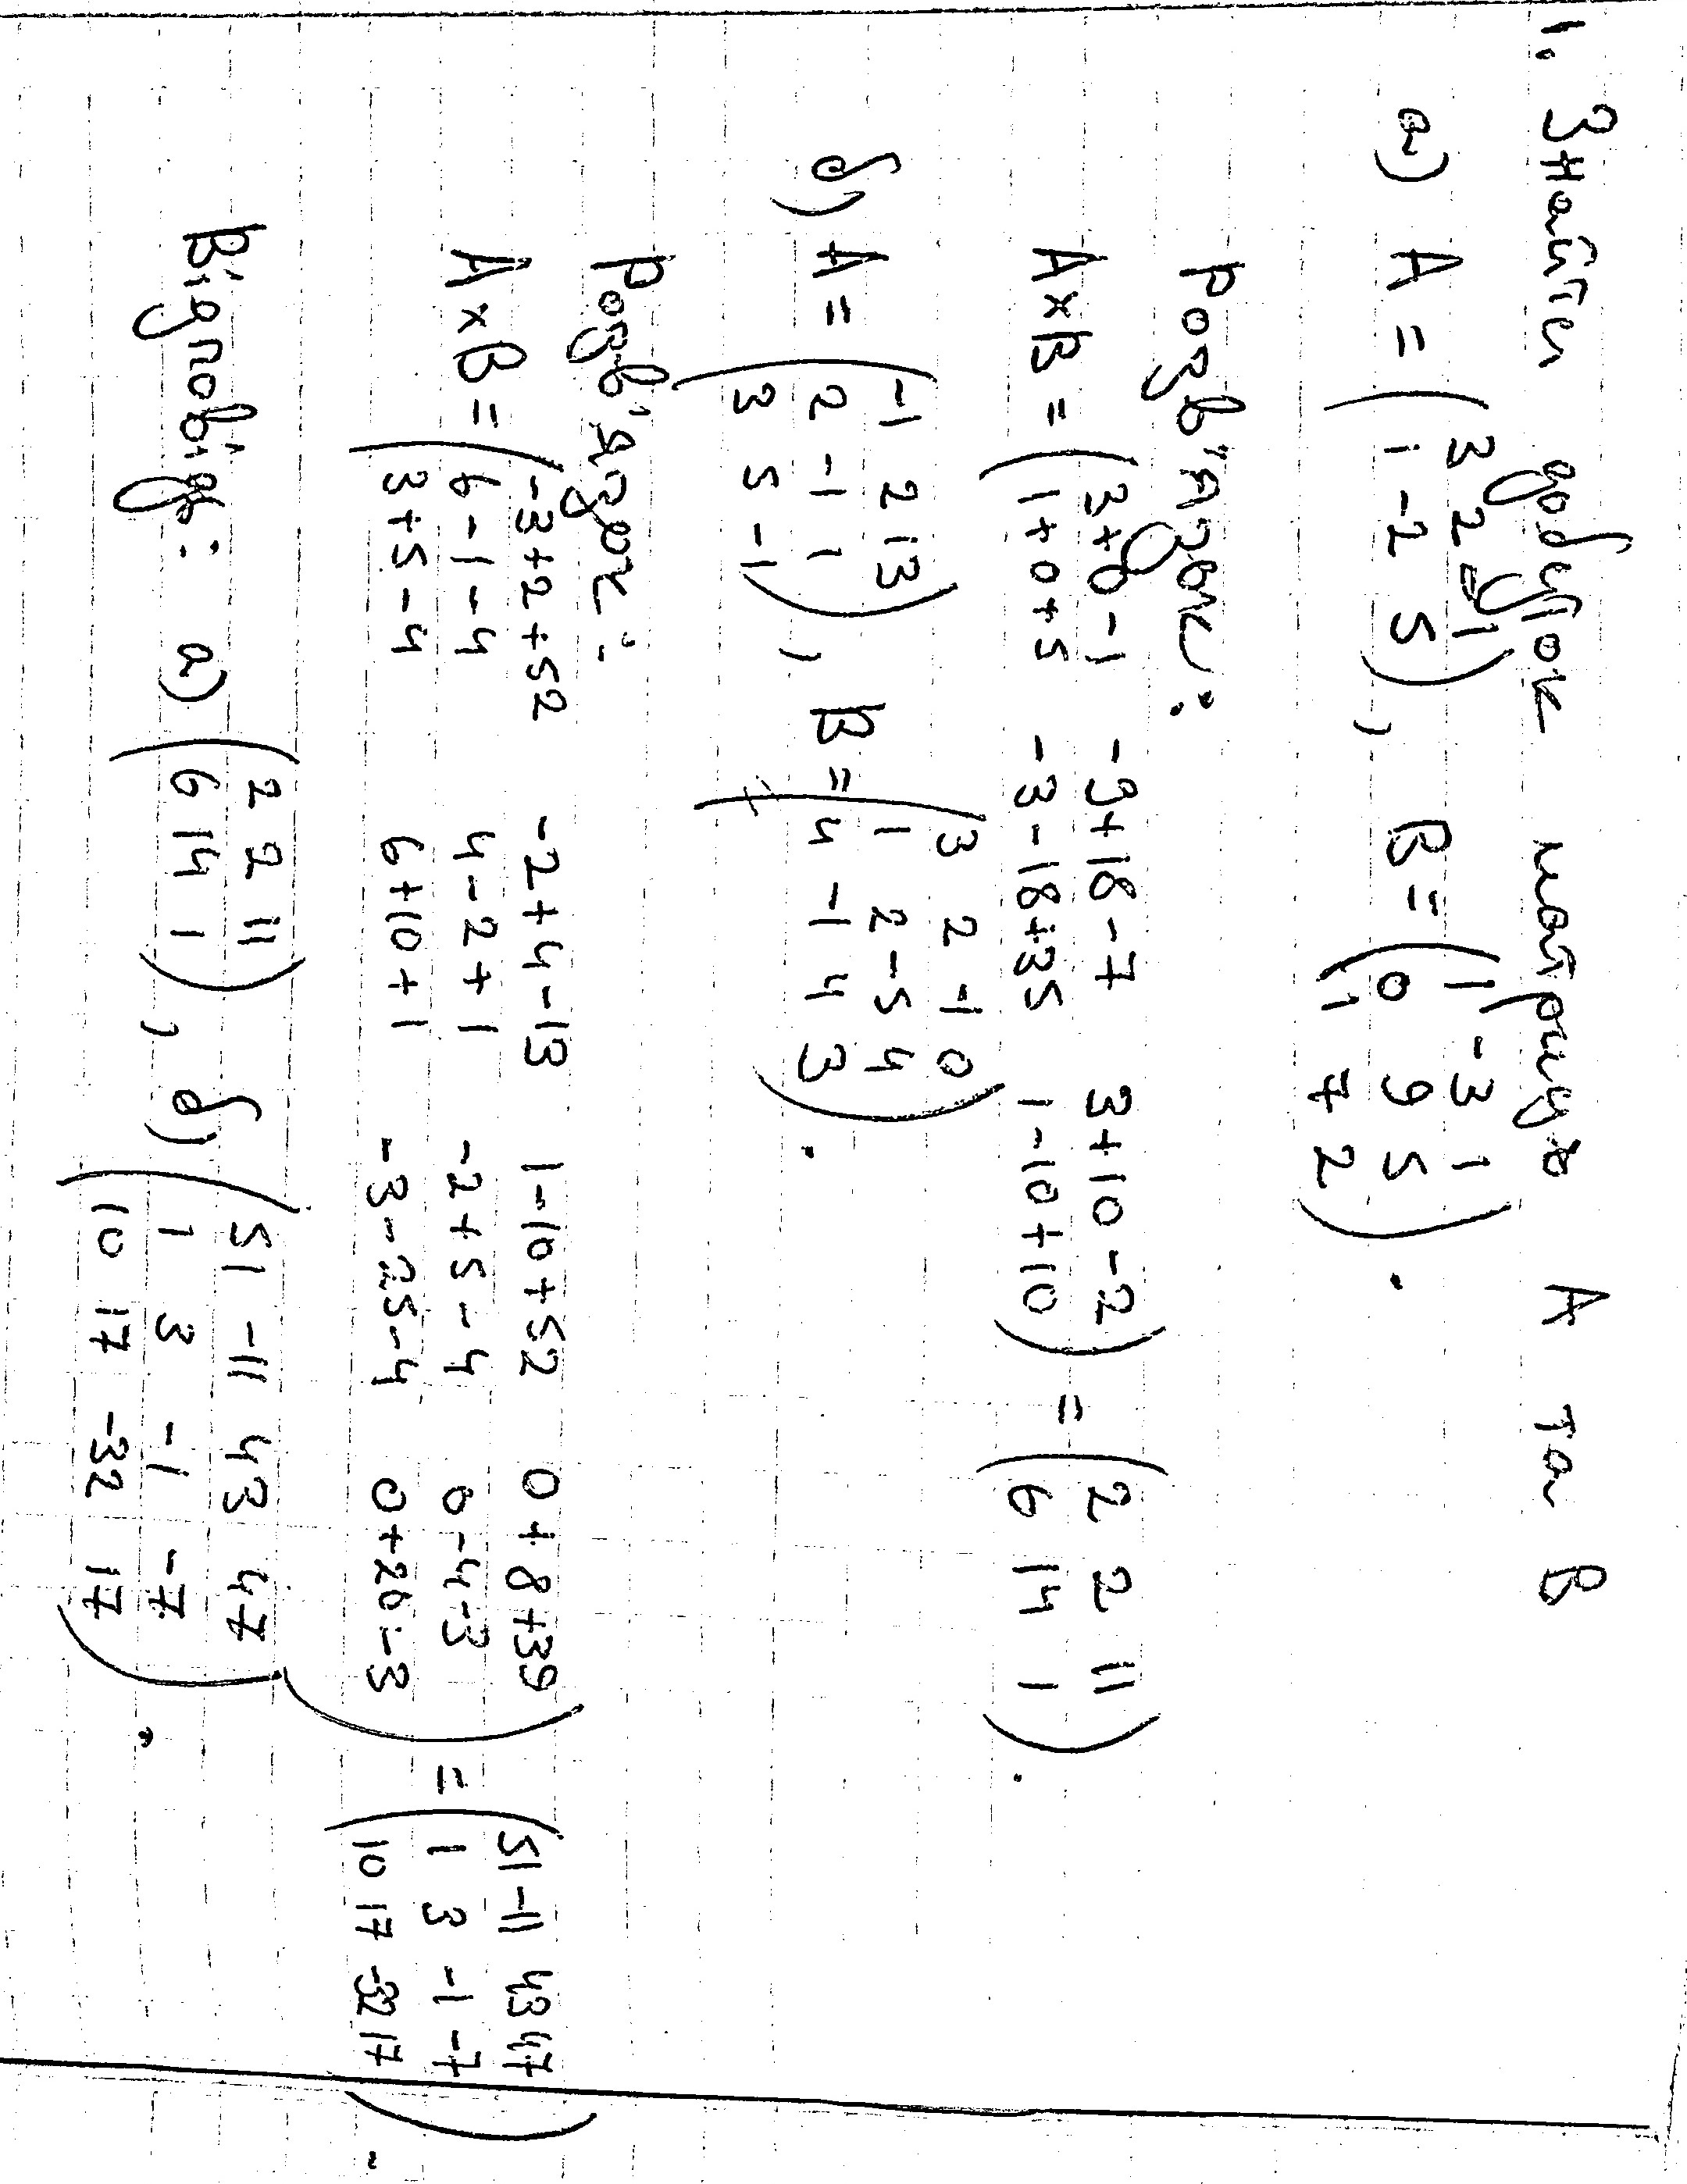 1. Знайти добуток матриць A та B
a) A = ( 3 2 -1
1 -2 5 ), B = ( 1 -3 1
0 9 5
1 7 2 ).
Розв'язок:
A×B = ( 3+0-1 -9+18-7 3+10-2
1+0+5 -3-18+35 1-10+10 ) = ( 2 2 11
6 14 1 ).
б) A = ( -1 2 13
2 -1 1
3 5 -1 ), B = ( 3 2 -1 0
1 2 -5 4
4 -1 4 3 ).
Розв'язок:
A×B = ( -3+2+52 -2+4-13 1-10+52 0+8+39
6-1-4 4-2+1 -2+5-4 0-4-3
3+5-4 6+10+1 -3-25-4 0+20-3 ) = ( 51 -11 43 47
1 3 -1 -7
10 17 -32 17 ).
Відповідь: a) ( 2 2 11
6 14 1 ), б) ( 51 -11 43 47
1 3 -1 -7
10 17 -32 17 ).